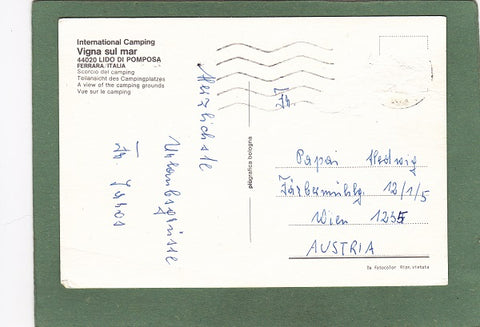 International Camping
Vigna sul mar
44020 LIDO DI POMPOSA
FERRARA/ITALIA
Scorcio del camping
Teilansicht des Campingplatzes
A view of the camping grounds
Vue sur le camping
Herzlichste
Urlaubsgrüsse
poligrafica bologna
Papai Hedwig
12/1/5
Wien 1235
AUSTRIA